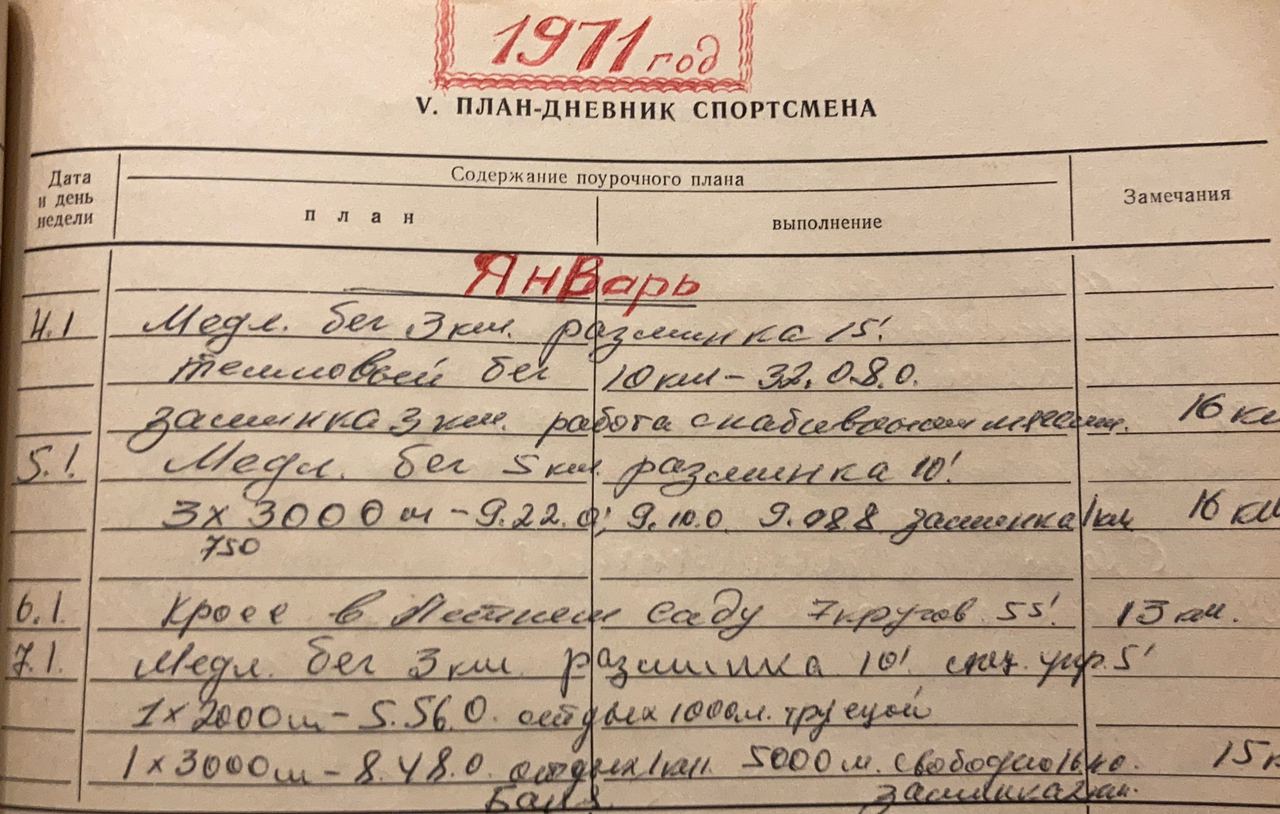 1971 год
V. ПЛАН-ДНЕВНИК СПОРТСМЕНА
Дата и день недели
Содержание поурочного плана
план
выполнение
Замечания
Январь
4.1 Медл. бег 3 км. разминка 15!
темповый бег 10 км - 32.08.0.
заминка 3 км. работа с набивными мячами. 16 км
5.1. Медл. бег 5 км. разминка 10!
3 х 3000 м - 9.22.0; 9.10.0 9.08.8 заминка 1 км 16 км
750
6.1. Кросс в Летнем саду 7 кругов 55! 13 км.
7.1. Медл. бег 3 км. разминка 10! спец. упр. 5'
1 х 2000 м - 5.56.0. отдых 1000 м. трусцой
1 х 3000 м - 8.48.0. отдых 1 км. 5000 м. свободно 15 к
Баня. заминка 2 км.